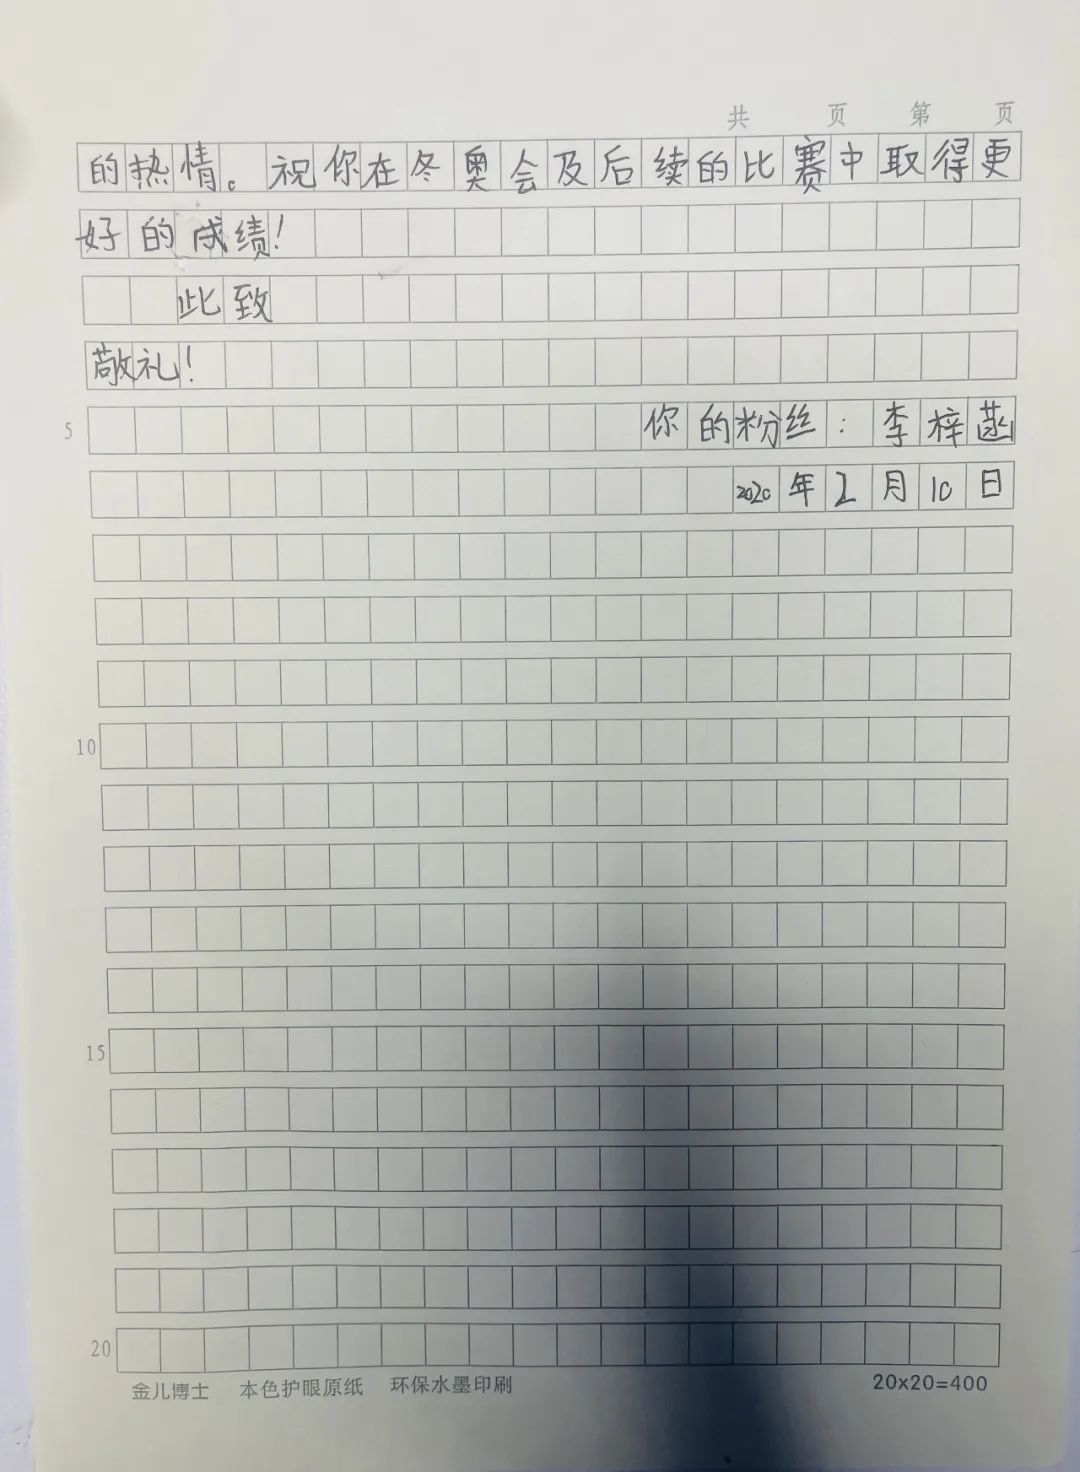 共 页 第 页
的热情。祝你在冬奥会及后续的比赛中取得更
好的成绩！
此致
敬礼！
5 你的粉丝：李梓菡
2020年2月10日
10
15
20
金儿博士 本色护眼原纸 环保水墨印刷 20x20=400